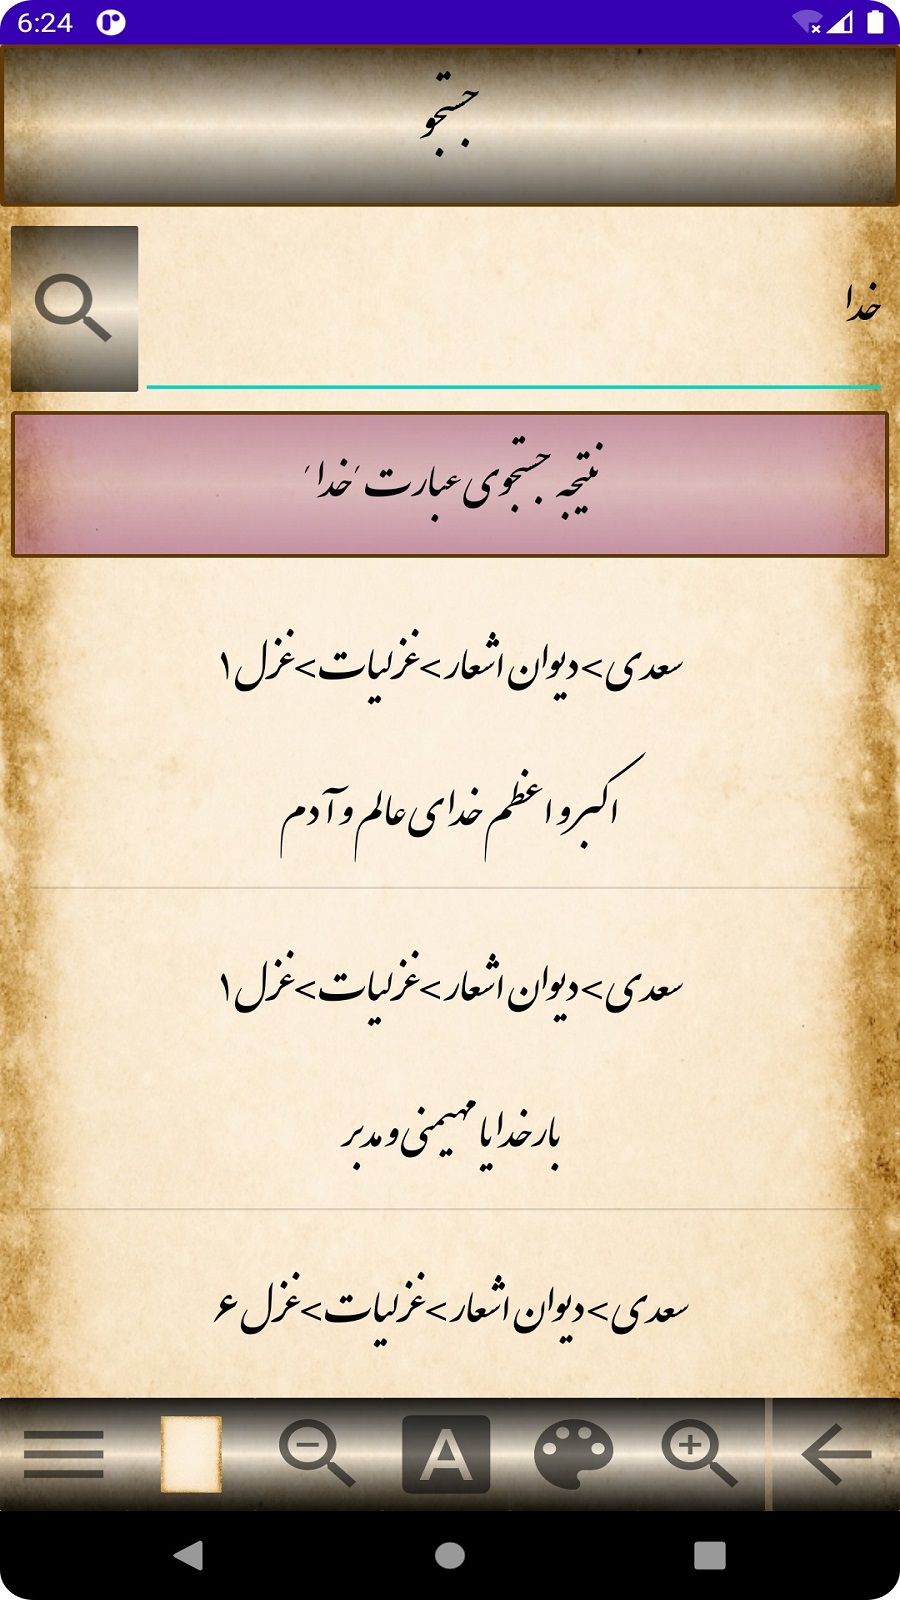 6:24
جستجو
خدا
نتیجه جستجوی عبارت 'خدا'
سعدی>دیوان اشعار>غزلیات>غزل ۱
اکبر و اعظم خدای عالم و آدم
سعدی>دیوان اشعار>غزلیات>غزل ۱
بار خدایا مهیمنی و مدبر
سعدی>دیوان اشعار>غزلیات>غزل ۶
A